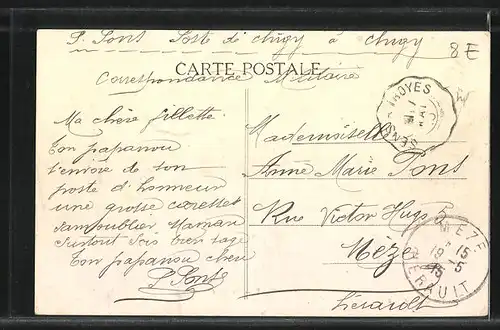 P. Pons Poste d'Augy à Augy
8 E
Correspondance Militaire
CARTE POSTALE
TROYES
SENS
Ma chère fillette
Ton papanou
t'envoie de son
poste d'honneur
une grosse caresse
sans oublier Maman
surtout sois bien sage
Ton papanou cheri
P. Pons
Mademoiselle
Anne Marie Pons
Rue Victor Hugo 5
Mèze
Hérault
MEZE
15
5
15
HERAULT